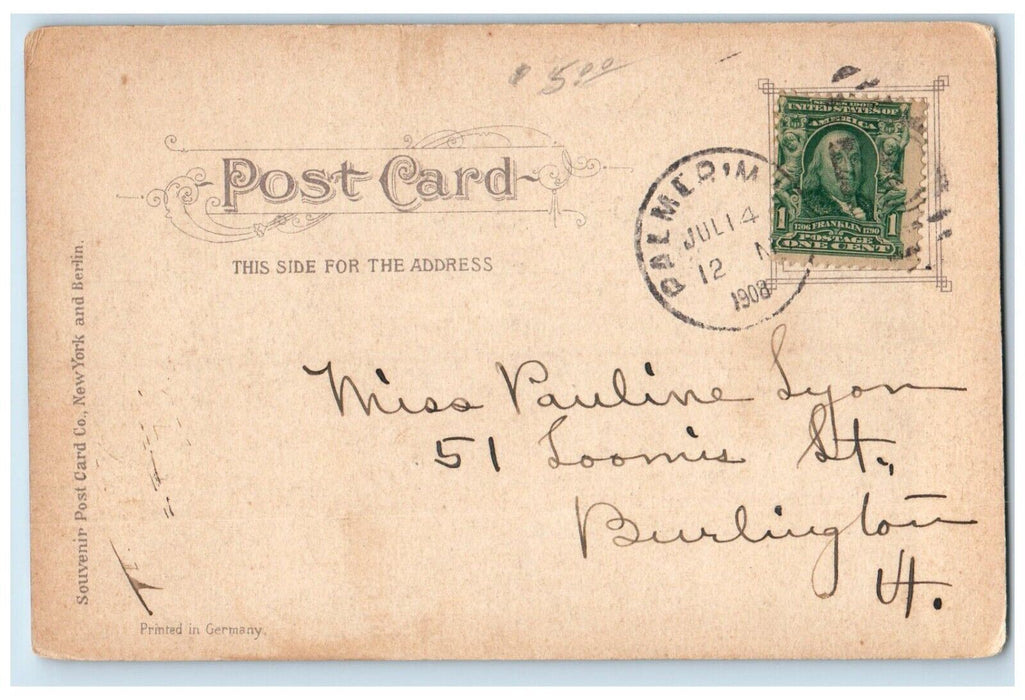 $ 5.00
SERIES 1902
UNITED STATES OF
AMERICA
1 1
1706 FRANKLIN 1790
POSTAGE
ONE CENT
PALMER, M
JUL 14
12 N
1908
Post Card
THIS SIDE FOR THE ADDRESS
Miss Pauline Lyon
51 Loomis St.,
Burlington
Vt.
Souvenir Post Card Co., New York and Berlin.
Printed in Germany.